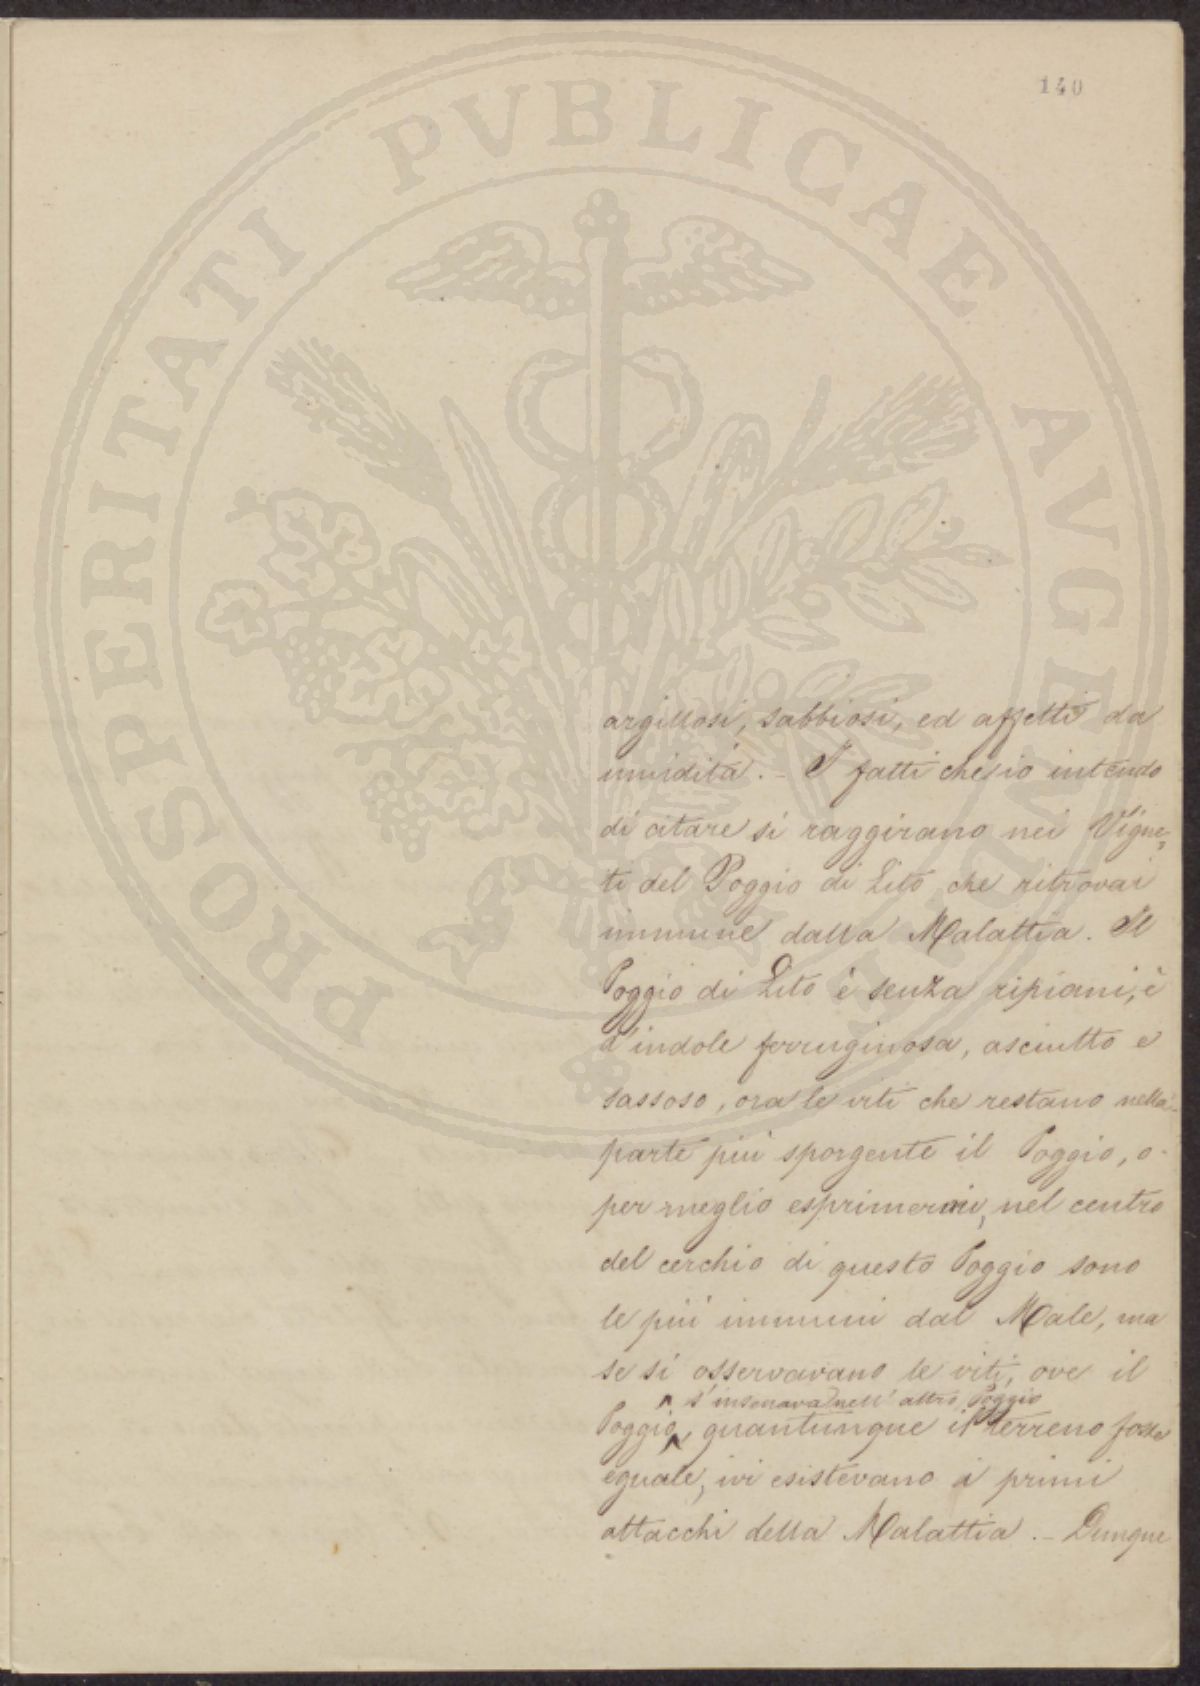 140
PROSPERITATI PVBLICAE AVGENDAE
argillosi, sabbiosi, ed affetti da
umidità. - I fatti che io intendo
di citare si raggirano nei Vigne=
ti del Poggio di Lito che ritrovai
immune dalla Malattia. Il
Poggio di Lito è senza ripiani, è
d'indole ferruginosa, asciutto e
sassoso, ora le viti che restano nella
parte più sporgente il Poggio, o
per meglio esprimermi, nel centro
del cerchio di questo Poggio sono
le più immuni dal Male, ma
se si osservavano le viti, ove il
s'insenava nell'altro Poggio
Poggio, quantunque il terreno fosse
eguale, ivi esistevano i primi
attacchi della Malattia. - Dunque